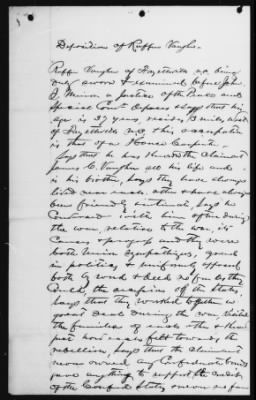 Deposition of Ruffin Vaughn
Ruffin Vaughn of Fayetteville N.C. being
duly sworn & examined before John
a Justice of the Peace and
Special Com'r Deposes & says that his
age is 37 years, resides 13 miles west
of Fayetteville N.C. & his occupation
is that of a House Carpenter.
Says that he has known the Claimant
James C. Vaughn all his life and
is his brother, says they have always
lived near each other & have always
been friendly & intimate, says he
conversed with him often during
the war, relative to the war, its
causes & progress and they were
both Union Sympathizers, agreed
in politics, & uniformly opposed
both by word & deed so far as they
could, the secession of the State,
says that they worked together a
great deal during the war, visited
the families of each other & knew
just how each felt towards the
rebellion, says that the claimant
never owned any Confederate bonds
gave anything to support the credit
of the Confed. States or ever so far